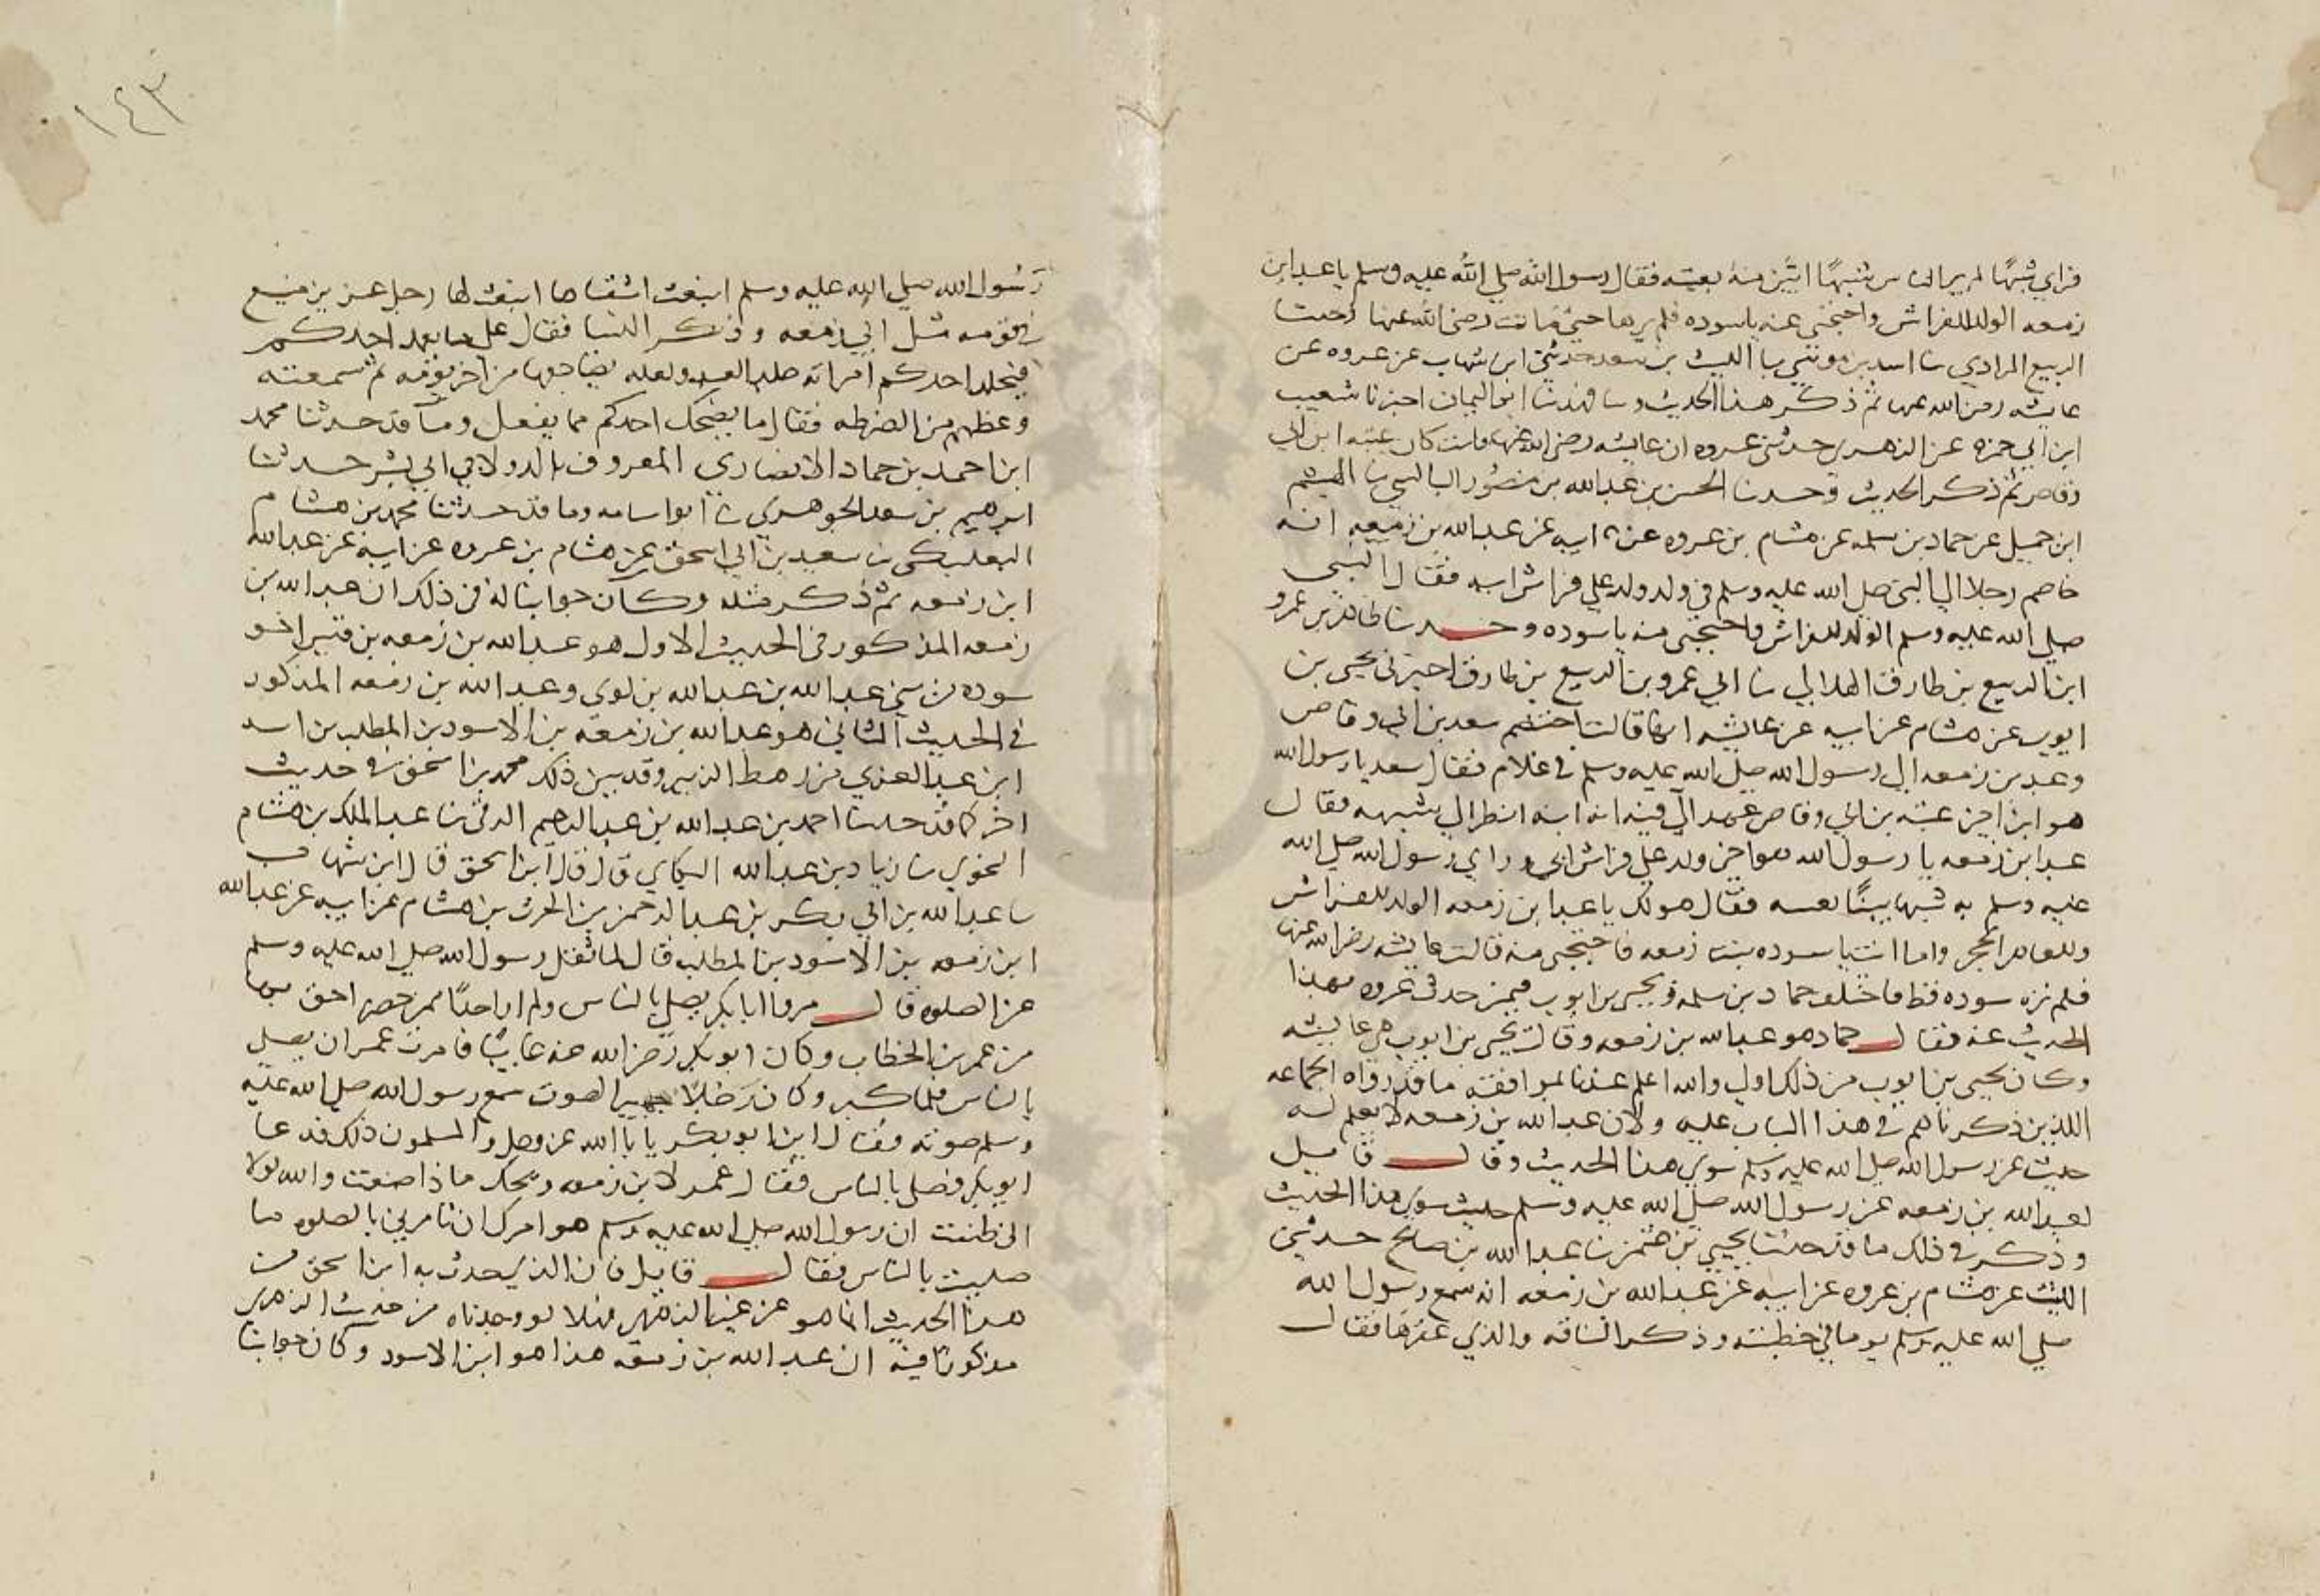 فراي شبهًا لم ير الناس شبهًا ابين منه بعتبه فقال رسول الله صلي الله عليه وسلم يا عبد ابن
زمعه الولد للفراش واحتجبي عنه يا سوده فلم يرها حتي ماتت رضي الله عنها
الربيع المرادي سا اسد بن موسي سا الليث بن سعد حدثني ابن شهاب عن عروه عن
عايشه رضي الله عنها ثم ذكر هذا الحديث وسا فهد سا ابو اليمان اخبرنا شعيب
ابن ابي حمزه عن الزهري حدثني عروه ان عايشه رضي الله عنها قالت كان عتبه ابن ابي
وقاص ثم ذكر الحديث وحدسا الحسن بن عبد الله بن منصور البالسي سا الهيثم
ابن جميل عن حماد بن سلمه عن هشام بن عروه عن ابيه عن عبد الله بن زمعه انه
خاصم رجلا الي النبي صلي الله عليه وسلم في ولد ولد علي فراش ابيه فقال النبي
صلي الله عليه وسلم الولد للفراش واحتجبي منه يا سوده وحدسا طاهر بن عمرو
ابن الربيع بن طارق الهلالي سا ابي عمرو بن الربيع بن طارق اخبرني يحيي بن
ايوب عن هشام عن ابيه عن عايشه انها قالت اختصم سعد بن ابي وقاص
وعبد بن زمعه الي رسول الله صلي الله عليه وسلم في غلام فقال سعد يا رسول الله
هو ابن اخي عتبه بن ابي وقاص عهد الي فيه انه ابنه انظر الي شبهه فقال
عبد ابن زمعه يا رسول الله هو اخي ولد علي فراش ابي وراي رسول الله صلي الله
عليه وسلم به شبها بينًا بعتبه فقال هو لك يا عبد ابن زمعه الولد للفراش
وللعاهر الحجر واما انت يا سوده بنت زمعه فاحتجبي منه قالت عايشه رضي الله عنها
فلم تره سوده قط فاختلف حماد بن سلمه ويحيي بن ايوب فيمن حدث عروه بهذا
الحديث عنه فقال حماد هو عبد الله بن زمعه وقال يحيي بن ايوب هي عايشه
وكان يحيي بن ايوب من ذلك اولي والله اعلم عندنا لموافقته ما قد رواه الجماعه
اللذين ذكرناهم في هذا الباب عليه ولان عبد الله بن زمعه لا نعلم له
حديث عن رسول الله صلي الله عليه وسلم سوي هذا الحديث وقال قايل
لعبد الله بن زمعه عن رسول الله صلي الله عليه وسلم حديث سوي هذا الحديث
وذكر في ذلك ما قد حدثنا يحيي بن عثمن سا عبد الله بن صالح حدثني
الليث عن هشام بن عروه عن ابيه عن عبد الله بن زمعه انه سمع رسول الله
صلي الله عليه وسلم يوما في خطبته وذكر الناقه والذي عقرها فقال
١٤٣
رسول الله صلي الله عليه وسلم انبعث اشقاها انبعث لها رجل عزيز منيع
في قومه مثل ابي زمعه وذكر النسا فقال علي ما يعمد احدكم
فيجلد احدكم امراته جلد العبد ولعله يضاجعها من اخر يومه ثم سمعته
وعظهم من الضرطه فقال ما يضحك احدكم مما يفعل وما قد حدثنا محمد
ابن احمد بن حماد الانصاري المعروف بالدولابي ابي بشر حدثنا
ابرهيم بن سعد الجوهري سا ابو اسامه وما قد حدثنا محمد بن هشام
البعلبكي سا سعيد بن ابي اسحق عن هشام بن عروه عن ابيه عن عبد الله
ابن زمعه ثم ذكر مثله وكان جوابنا له في ذلك ان عبد الله بن
زمعه المذكور في الحديث الاول هو عبد الله بن زمعه بن قيس اخو
سوده من بني عبد الله بن عبد الله بن لوي وعبد الله بن زمعه المذكور
في الحديث الثاني هو عبد الله بن زمعه بن الاسود بن المطلب بن اسد
ابن عبد العزي من رهط الزبير وقد بين ذلك محمد بن اسحق في حديث
اخر كما قد حدثنا احمد بن عبد الله بن عبد الرحيم البرقي سا عبد الملك بن هشام
النحوي سا زياد بن عبد الله البكاي قال قال ابن اسحق قال ابن شهاب
سا عبد الله بن ابي بكر بن عبد الرحمن بن الحرث بن هشام عن ابيه عن عبد الله
ابن زمعه بن الاسود بن المطلب قال لما ثقل رسول الله صلي الله عليه وسلم
عن الصلوه قال مروا ابا بكر يصلي بالناس ولم ار احدًا ممن حضر احق بها
من عمر بن الخطاب وكان ابو بكر رضي الله عنه غايبًا فامرت عمر ان يصلي
بالناس فلما كبر وكان رجلًا جهير الصوت سمع رسول الله صلي الله عليه
وسلم صوته فقال اين ابو بكر يابا الله عز وجل والمسلمون ذلك فدعا
ابو بكر فصلي بالناس فقال عمر لابن زمعه ويحك ماذا صنعت والله لولا
اني ظننت ان رسول الله صلي الله عليه وسلم هو امرك ان تامرني بالصلوه ما
صليت بالناس فقال قايل فان الذي يحدث به ابن اسحق من
هذا الحديث انما هو عن غير الزهري فهلا لو وجدناه من حديث الزهري
مذكورًا فيه ان عبد الله بن زمعه هذا هو ابن الاسود وكان جوابنا